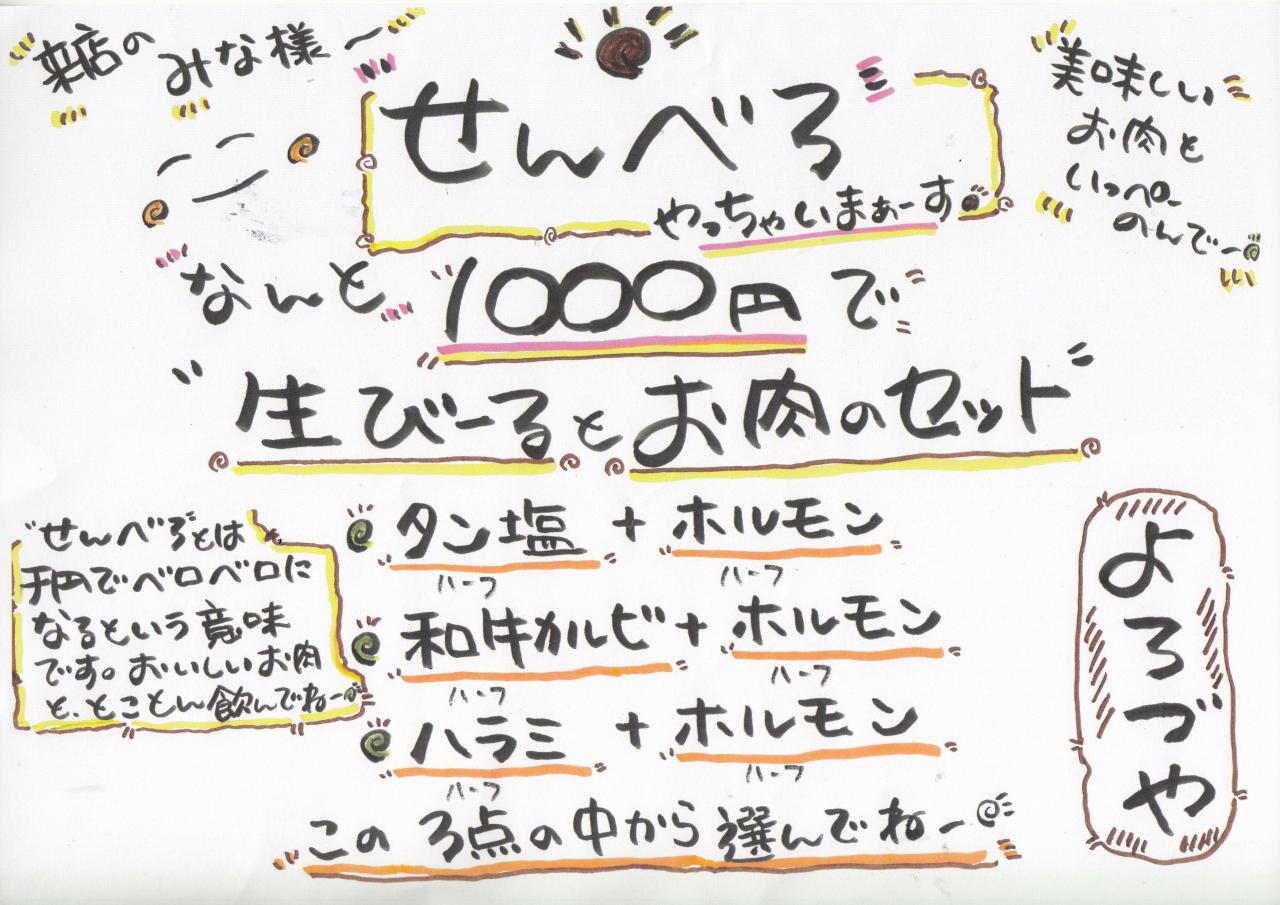 来店の みな様ー
せんべろ
やっちゃいまぁーす
美味しい
お肉と
いっぺー
のんでー
なんと 1000円で
"生びーるとお肉のセット"
"せんべろ"とは
千円でベロベロに
なるという意味
です。おいしいお肉
と、とことん飲んでねー
タン塩 + ホルモン
ハーフ ハーフ
和牛カルビ + ホルモン
ハーフ ハーフ
ハラミ + ホルモン
ハーフ ハーフ
この 3点の中から選んでねー
よろづや